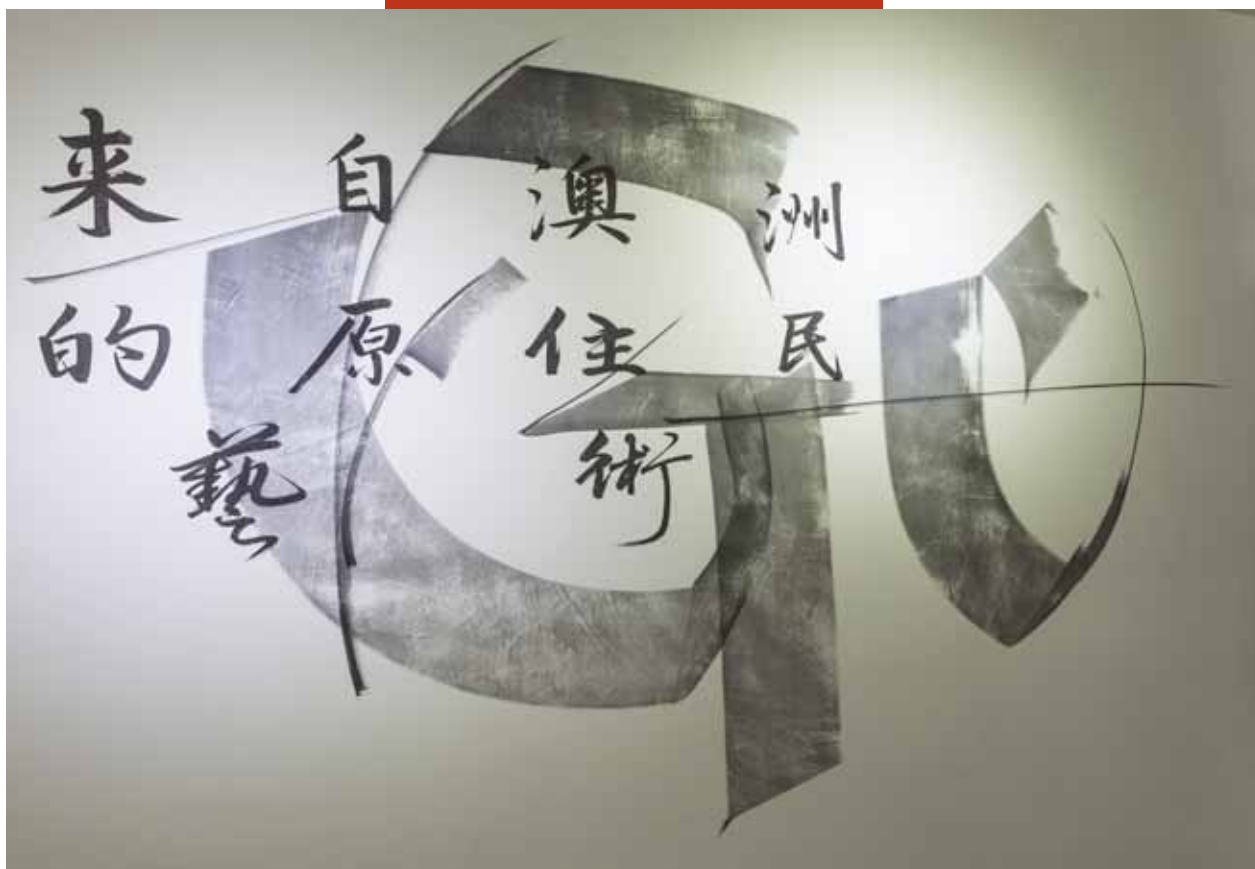 来自澳洲
的原住民
藝術